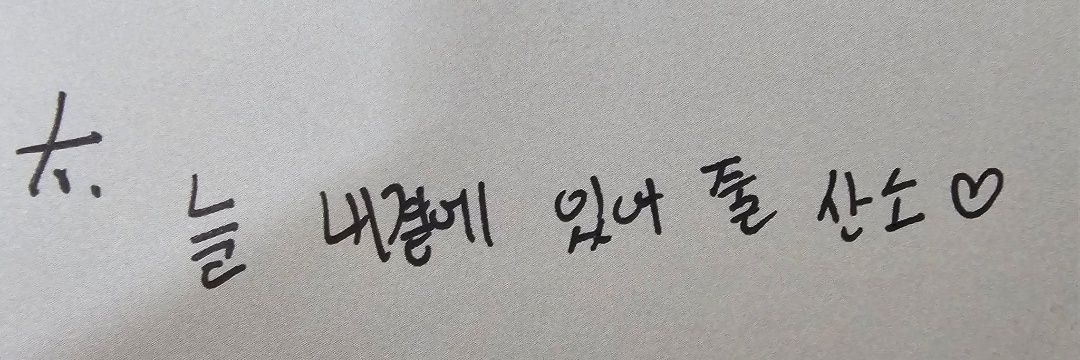 太.
늘 내곁에 있어 줄 산소♡